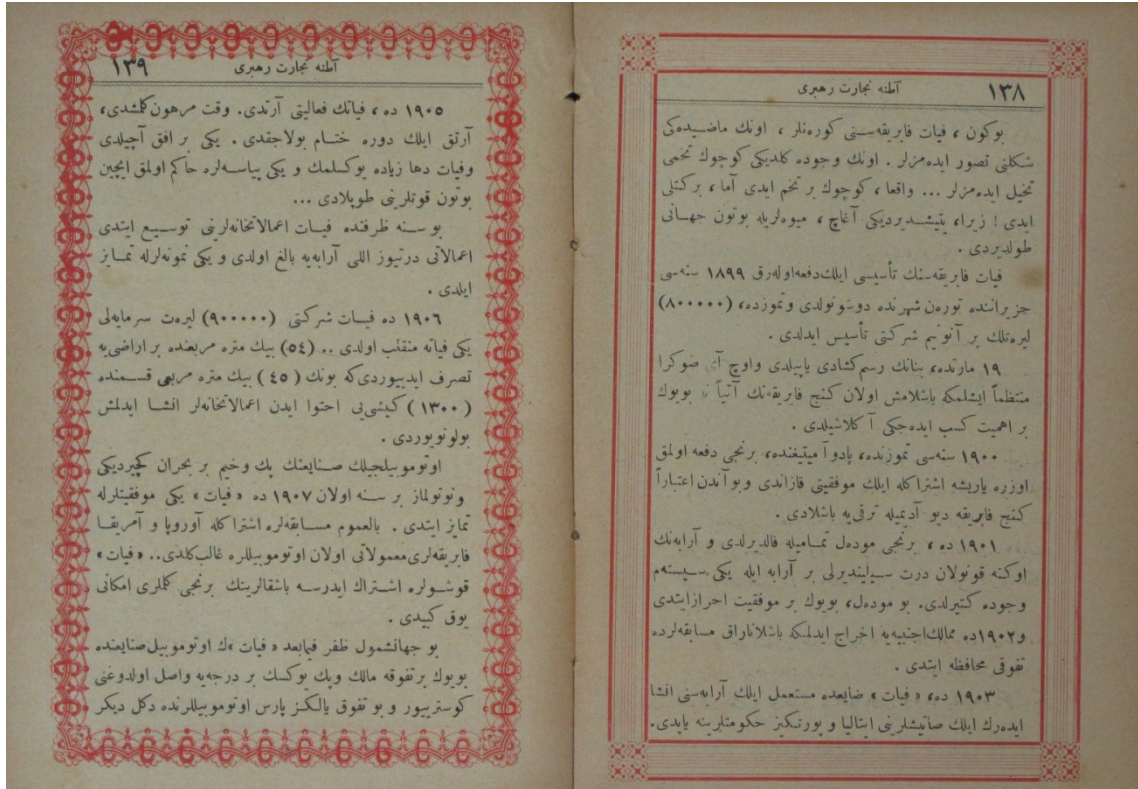 ١٣٨
آطنه تجارت رهبری
بوكون ، فيات فابريقه‌سـنی كوره‌نلر ، اونك ماضيـده‌كی
شكلنی تصور ايده‌مزلر . اونك وجوده كلديكی كوچوك تخمی
تخيل ايده‌مزلر ... واقعا ، كوچوك بر تخم ايدی آما ، بركتلی
ايدی ! زيرا ، يتيشـديرديكی آغاچ ، ميوه‌لريله بوتون جهـانی
طولديردی .
فيات فابريقه‌سنك تأسيسی ايلك‌دفعه‌اوله‌رق ١٨٩٩ سنه‌سی
حزيراننده تورەن شهرنده دوشونولدی وتموزده، (٨٠٠٠٠٠)
ليره‌تلك بر آنونيم شركتی تأسيس ايدلدی .
١٩ مارتده، بنانك رسم‌كشادی ياپيلدی واوچ آی صوكرا
منتظماً ايشلمكه باشلامش اولان كنج فابريقه‌نك آتياً نه بويوك
بر اهميت كسب ايده‌جكی آكلاشيلدی .
١٩٠٠ سنه‌سی تموزنده، پادوآ ميتيغنده، برنجی دفعه اولمق
اوزره ياريشه اشتراكله ايلك موفقيتی قازاندی وبو آندن اعتباراً
كنج فابريقه ديو آديميله ترقی‌يه باشلادی .
١٩٠١ ده ، برنجی مودەل تمـاميله قالديرلدی و آرابه‌نك
اوكنه قونولان درت سـيليندیرلی بر آرابه ايله يكی سـيسته‌م
وجوده كتيرلدی. بو مودەل، بويوك بر موفقيت احرازايتدی
و١٩٠٢ده ممالك‌اجنبيه‌يه اخراج ايدلمكه باشلاناراق مسابقه‌لرده
تفوقی محافظه ايتدی .
١٩٠٣ ده، « فيات » ضايعده مستعمل ايلك آرابه‌سنی انشا
ايده‌رك ايلك صاتيشلرينی ايتاليا و پورتكيز حكومتلرينه ياپدی.
١٣٩
آطنه تجارت رهبری
١٩٠٥ ده ، فياتك فعاليتی آرتدی. وقت مرهون‌كلشدی،
آرتق ايلك دوره ختـام بولاجقدی . يكی بر افق آچيلدی
وفيات دها زياده يوكسلمك و يكی پياسـه‌لره حاكم اولمق ايچين
بوتون قوتلرينی طوپلادی ...
بو سـنه ظرفنده فيـات اعمالاتخانه‌لرينی توسـيع ايتدی
اعمالاتی درتيوز اللی آرابه‌يه بالغ اولدی و يكی نمونه‌لرله تمـايز
ايلدی .
١٩٠٦ ده فيـات شركتی (٩٠٠٠٠٠) ليره‌ت سرمايه‌لی
يكی فياته منقلب اولدی .. (٥٤) بيك متره مربعنده بر اراضی‌يه
تصرف ايديیوردی‌كه بونك (٤٥) بيك متره مربعی قسـمنده
(١٣٠٠) كيشی‌يی احتوا ايدن اعمالاتخانه‌لر انشـا ايدلمش
بولونويوردی .
اوتوموبيلجيلك صـنايعنك پك وخيم بر بحران كچيرديكی
ونوتولماز بر سـنه اولان ١٩٠٧ ده « فيات » يكی موفقيتلرله
تمايز ايتدی . بالعموم مسـابقه‌لره اشتراكله آوروپا و آمريقـا
فابريقه‌لری‌معمولاتی اولان اوتوموبيللره غالب‌كلدی.. « فيات »
قوشـولره اشـتراك ايدرسـه باشقالرينك برنجی كلملری امكانی
يوق كبيدی .
بو جهانشمول ظفر فيمابعد « فيات »ك اوتوموبيل‌صنايعنده
بويوك برتفوقه مالك وپك يوكسك بر درجه‌يه واصل اولدوغنی
كوسترييور و بو تفوق يالـكز پارس اوتوموبيللرنده دكل ديكر